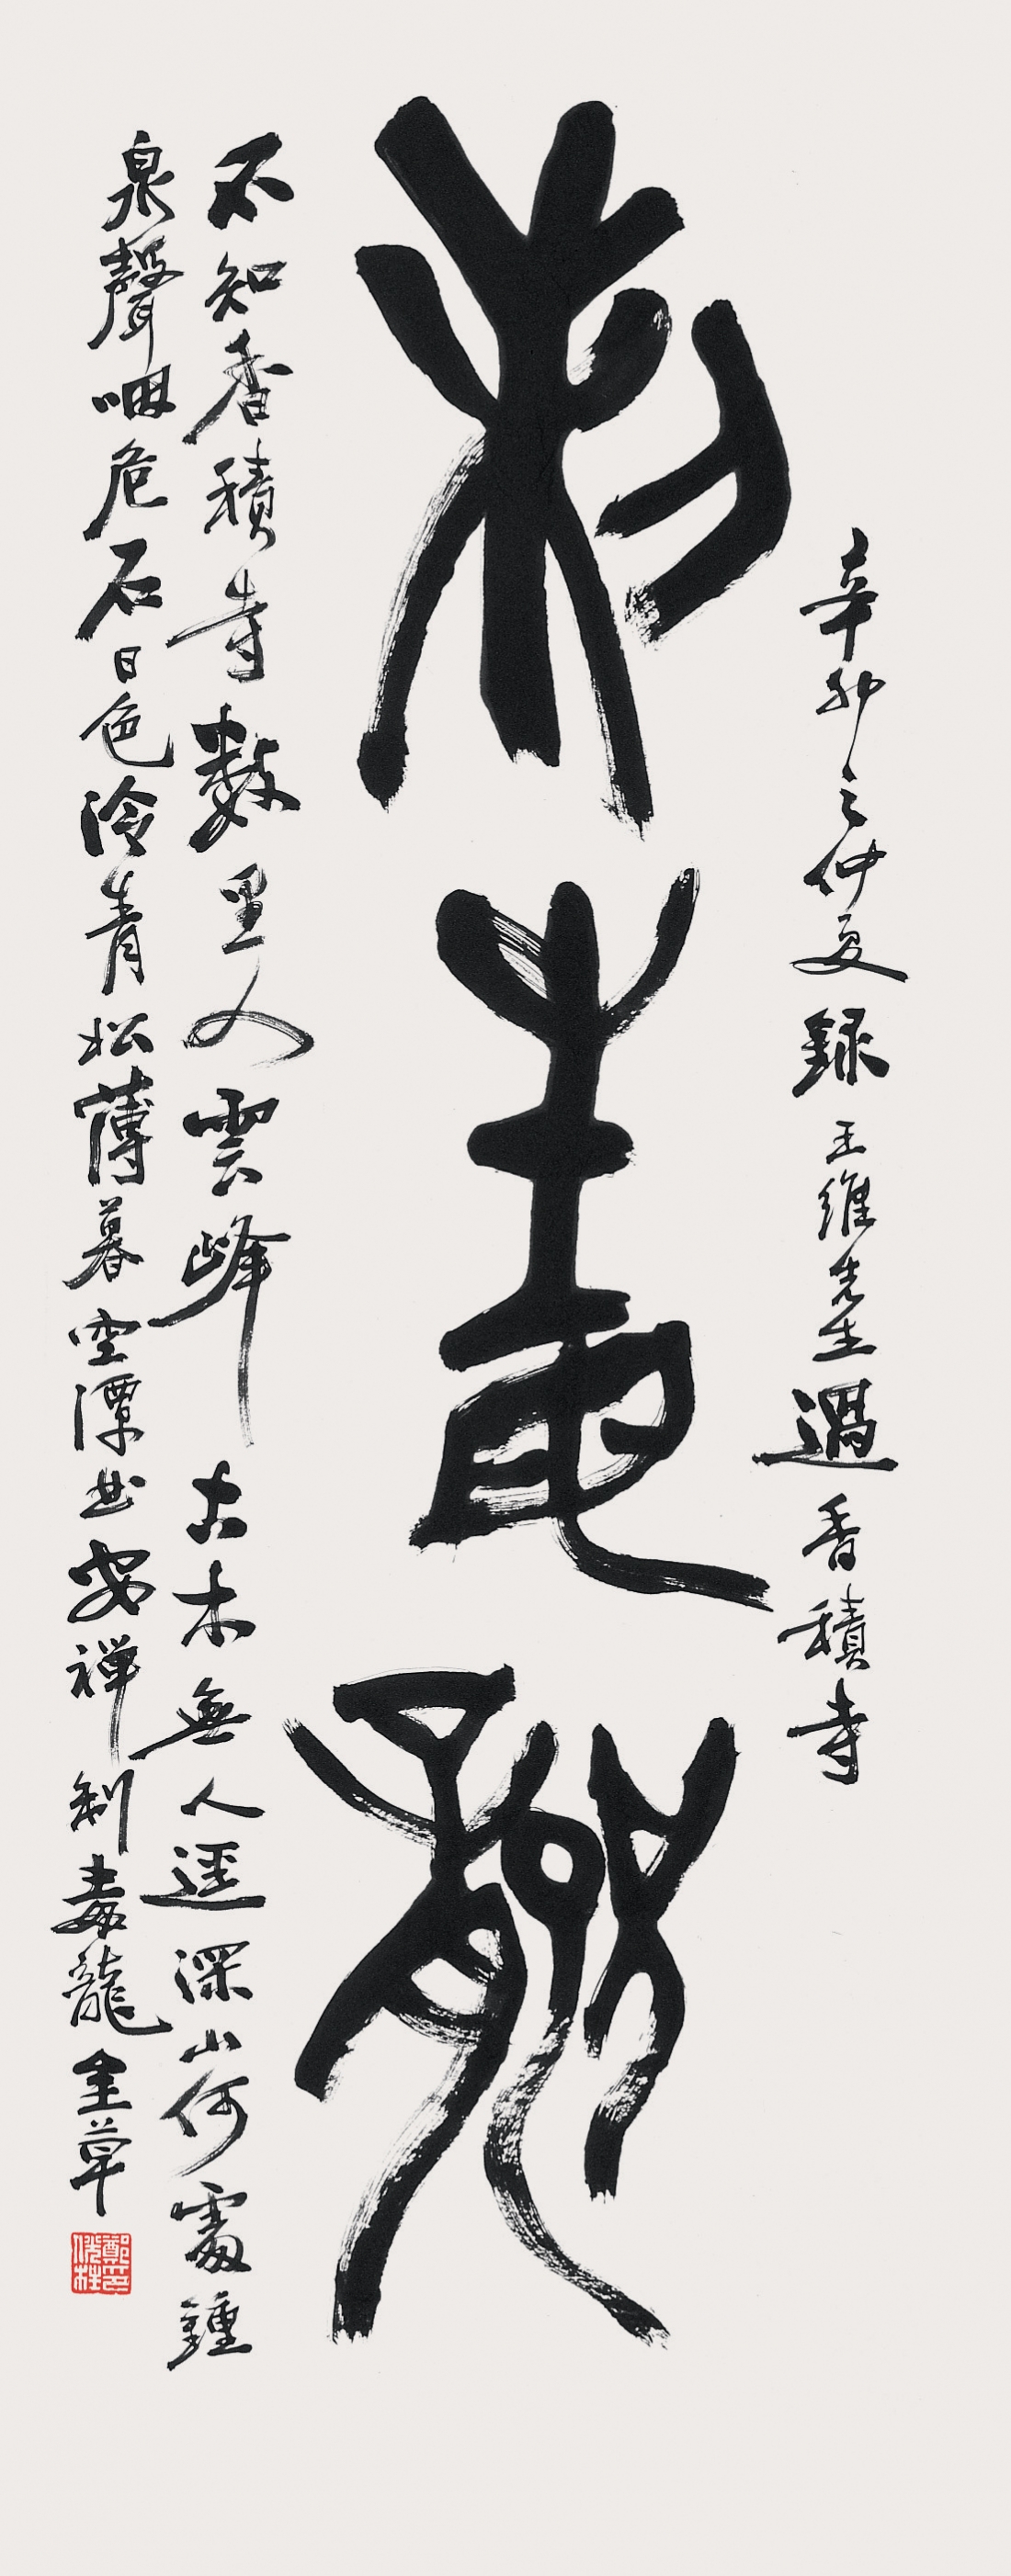 辛卯之仲夏錄王維先生過香積寺
制毒龍
不知香積寺數里入雲峰古木無人逕深山何處鍾
泉聲咽危石日色冷青松薄暮空潭曲安禪制毒龍